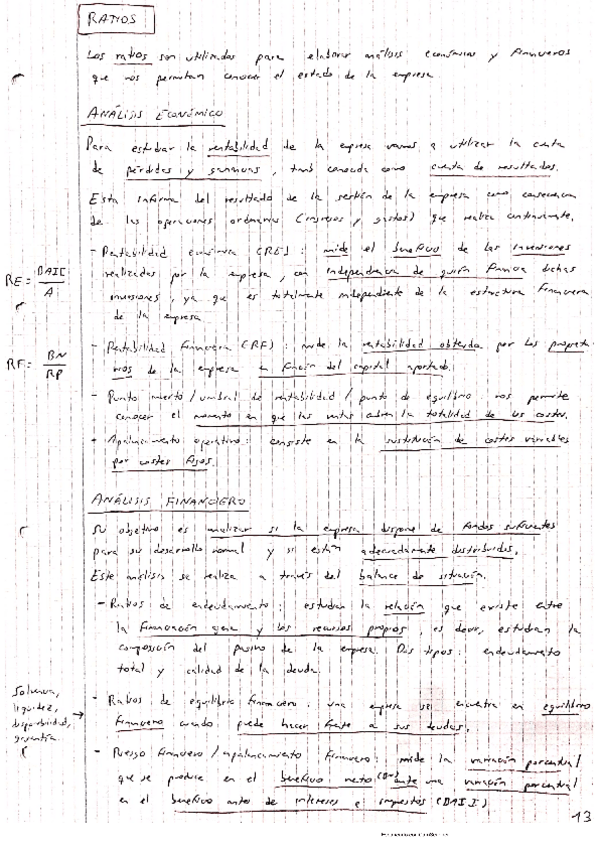 RATIOS
Los ratios son utilizados para elaborar análisis económicos y financieros
que nos permitan conocer el estado de la empresa
ANÁLISIS ECONÓMICO
Para estudiar la rentabilidad de la empresa vamos a utilizar la cuenta
de pérdidas y ganancias, tamb conocida como cuenta de resultados.
Esta informa del resultado de la gestión de la empresa como consecuencia
de las operaciones ordinarias (ingresos y gastos) que realiza continuamente.
- Rentabilidad económica (RE): mide el beneficio de las inversiones
realizadas por la empresa, con independencia de quién financia dichas
inversiones, ya que es totalmente independiente de la estructura financiera
de la empresa
RE = BAII / A
- Rentabilidad financiera (RF): mide la rentabilidad obtenida por los propieta
rios de la empresa en función del capital aportado.
RF = BN / RP
- Punto muerto / umbral de rentabilidad / punto de equilibrio nos permite
conocer el momento en que las ventas cubren la totalidad de los costes.
- Apalancamiento operativo: consiste en la sustitución de costes variables
por costes fijos.
ANÁLISIS FINANCIERO
Su objetivo es analizar si la empresa dispone de fondos suficientes
para su desarrollo normal y si están adecuadamente distribuidos.
Este análisis se realiza a través del balance de situación.
- Ratios de endeudamiento: estudian la relación que existe entre
la financiación y los recursos propios, es decir, estudian la
composición del pasivo de la empresa. Dos tipos: endeudamiento
total y calidad de la deuda.
Solvencia,
liquidez,
disponibilidad,
garantía
→
- Ratios de equilibrio financiero: una empresa se encuentra en equilibrio
financiero cuando puede hacer frente a sus deudas.
- Riesgo financiero / apalancamiento financiero: mide la variación porcentual
que se produce en el beneficio neto (BN) ante una variación porcentual
en el beneficio antes de intereses e impuestos (BAII)
13